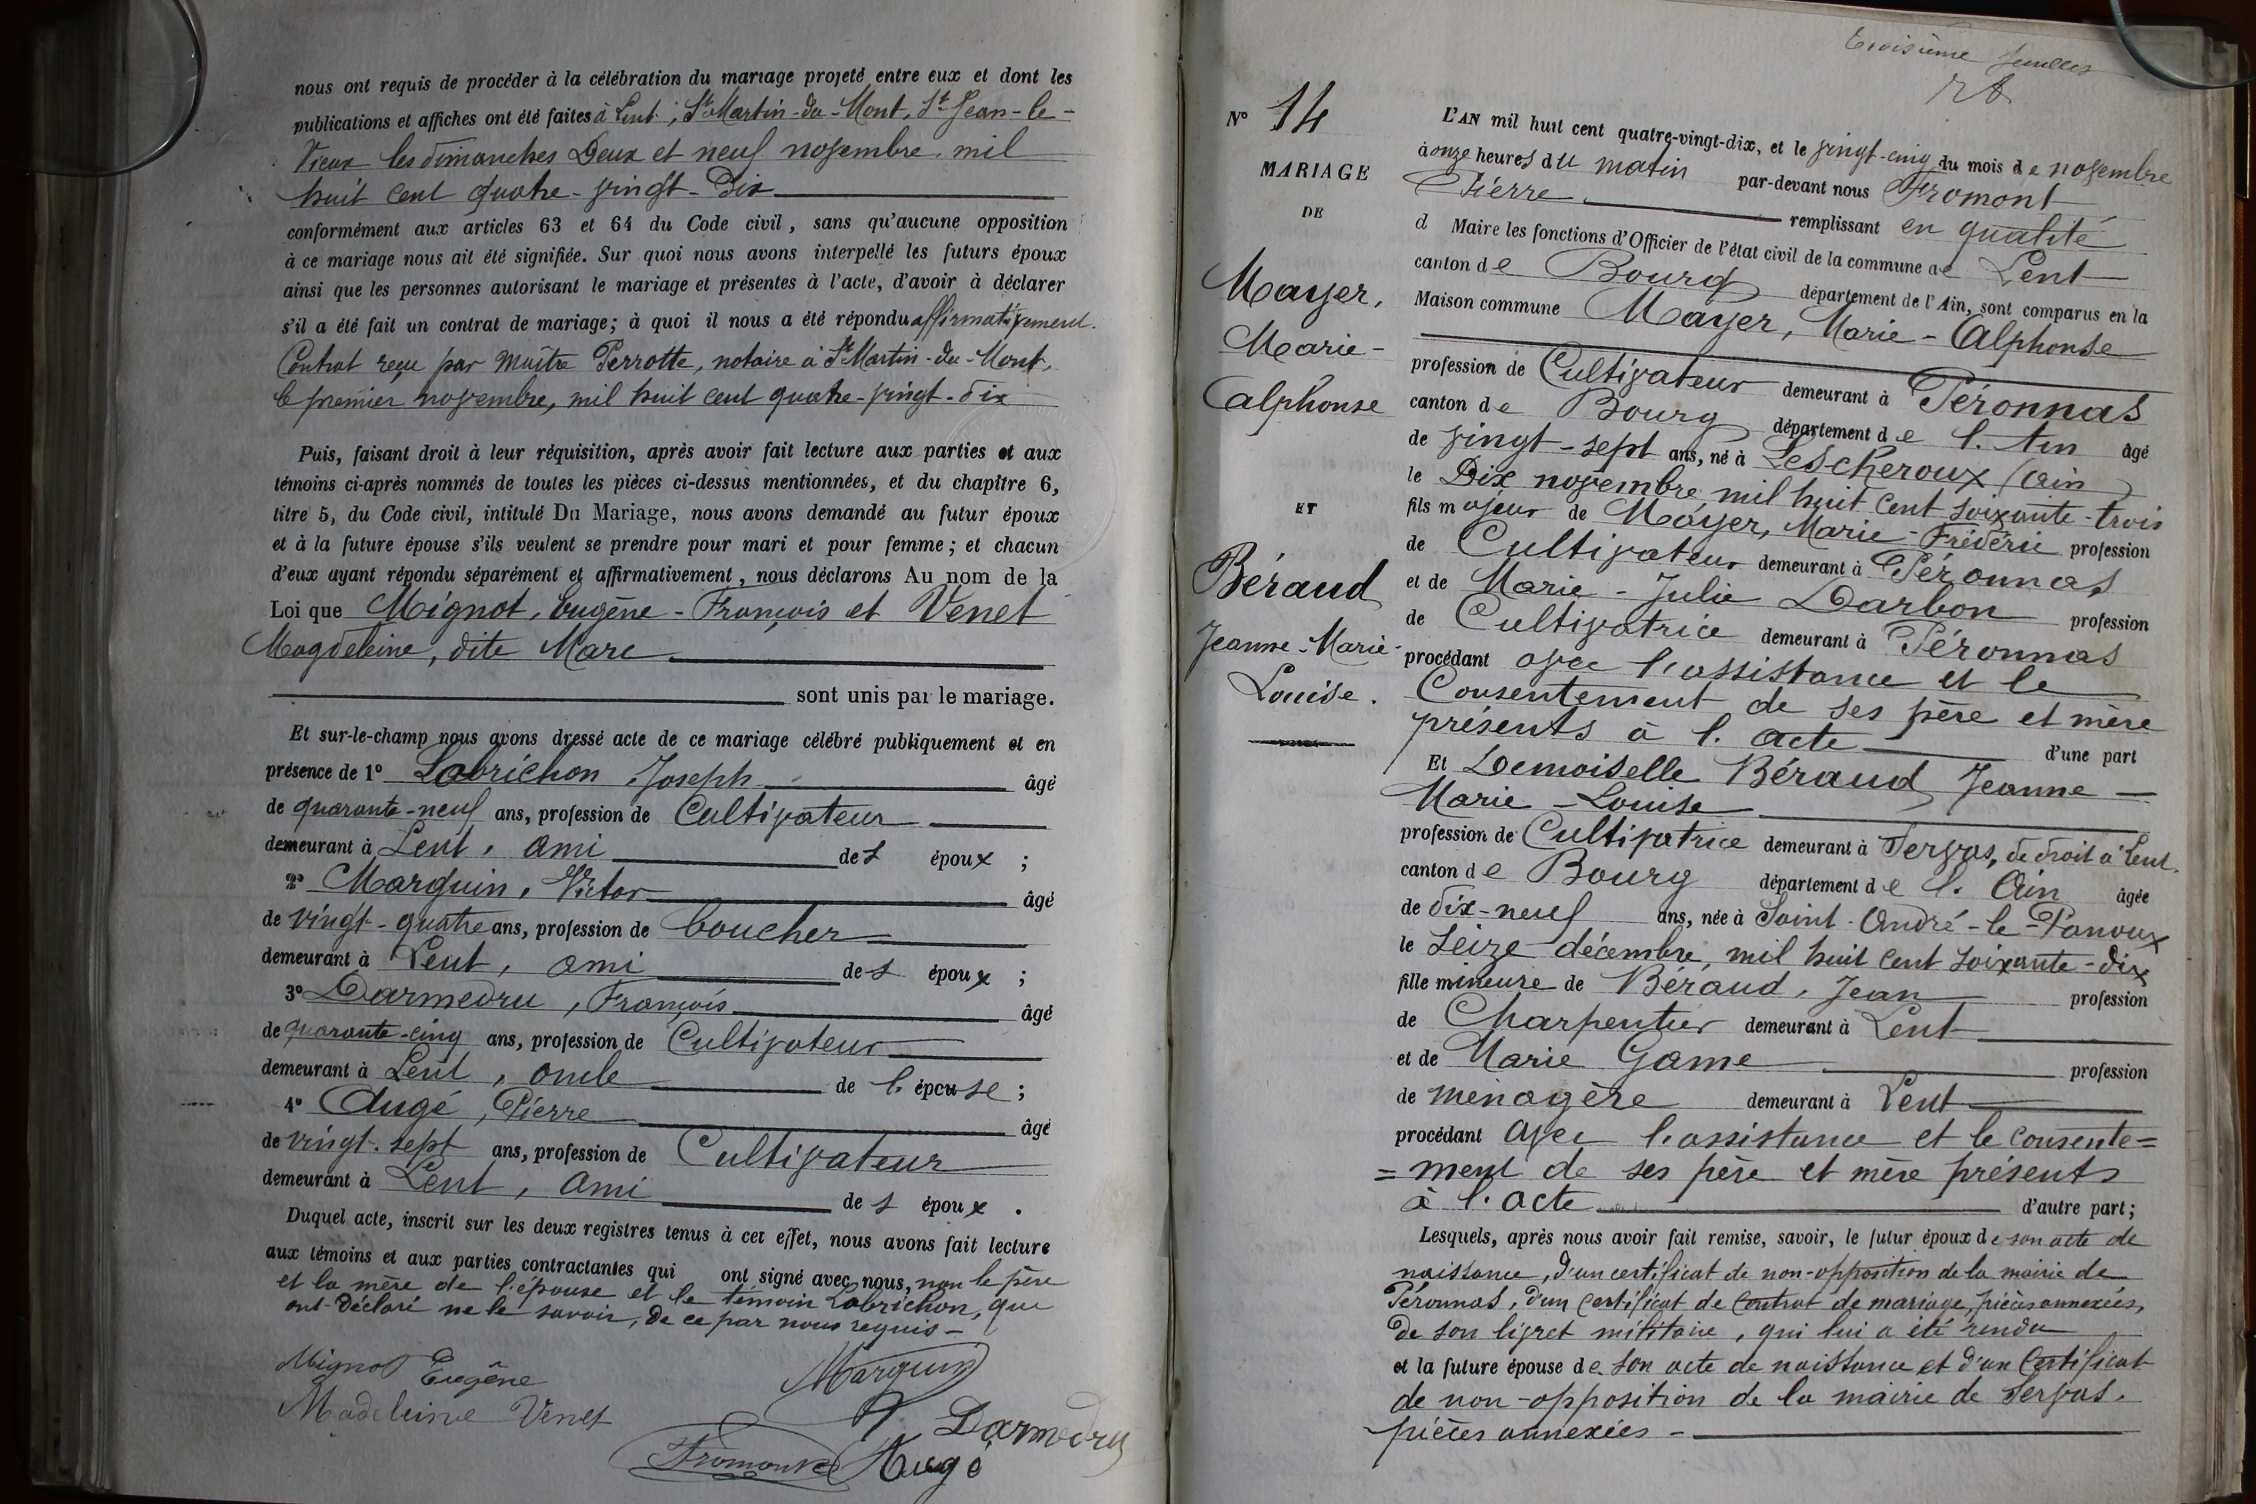 nous ont requis de procéder à la célébration du mariage projeté entre eux et dont les
publications et affiches ont été faites à Lent, St-Martin-du-Mont, St-Jean-le-
Vieux les dimanches Deux et neuf novembre, mil
huit cent quatre-vingt-Dix
conformément aux articles 63 et 64 du Code civil, sans qu'aucune opposition
à ce mariage nous ait été signifiée. Sur quoi nous avons interpellé les futurs époux
ainsi que les personnes autorisant le mariage et présentes à l'acte, d'avoir à déclarer
s'il a été fait un contrat de mariage; à quoi il nous a été répondu affirmativement.
Contrat reçu par Maître Perrotte, notaire à St-Martin-du-Mont,
le premier novembre, mil huit cent quatre-vingt-dix
Puis, faisant droit à leur réquisition, après avoir fait lecture aux parties et aux
témoins ci-après nommés de toutes les pièces ci-dessus mentionnées, et du chapitre 6,
titre 5, du Code civil, intitulé Du Mariage, nous avons demandé au futur époux
et à la future épouse s'ils veulent se prendre pour mari et pour femme; et chacun
d'eux ayant répondu séparément et affirmativement, nous déclarons Au nom de la
Loi que Mignot, Eugène-François et Venet
Magdeleine, dite Marc
sont unis par le mariage.
Et sur-le-champ nous avons dressé acte de ce mariage célébré publiquement et en
présence de 1° Labrichon Joseph âgé
de quarante-neuf ans, profession de Cultivateur
demeurant à Lent, ami des époux;
2° Marguin, Victor âgé
de vingt-quatre ans, profession de boucher
demeurant à Lent, ami des époux;
3° Darmedru, François âgé
de quarante-cinq ans, profession de Cultivateur
demeurant à Lent, oncle de l'épouse;
4° Augé, Pierre âgé
de vingt-sept ans, profession de Cultivateur
demeurant à Lent, ami des époux.
Duquel acte, inscrit sur les deux registres tenus à cet effet, nous avons fait lecture
aux témoins et aux parties contractantes qui ont signé avec nous, non le père
et la mère de l'épouse et le témoin Labrichon, qui
ont déclaré ne le savoir, de ce par nous requis-
Mignot Eugène
Marguin
Madeleine Venet
Darmedru
Fromont
Augé
Troisième
N° 14
MARIAGE
DE
Mayer,
Marie-
Alphonse
ET
Béraud
Jeanne-Marie-
Louise.
L'AN mil huit cent quatre-vingt-dix, et le vingt-cinq du mois de novembre
à onze heures du matin par-devant nous Fromont
Pierre remplissant en qualité
d Maire les fonctions d'Officier de l'état civil de la commune de Lent
canton de Bourg département de l'Ain, sont comparus en la
Maison commune Mayer, Marie-Alphonse
profession de Cultivateur demeurant à Péronnas
canton de Bourg département de l'Ain âgé
de vingt-sept ans, né à Lescheroux (Ain)
le Dix novembre mil huit cent soixante-trois
fils majeur de Mayer, Marie-Frédéric profession
de Cultivateur demeurant à Péronnas
et de Marie-Julie Darbon profession
de Cultivatrice demeurant à Péronnas
procédant avec l'assistance et le
Consentement de ses père et mère
présents à l'acte d'une part
Et Demoiselle Béraud Jeanne-
Marie-Louise
profession de Cultivatrice demeurant à Servas, de droit à Lent,
canton de Bourg département de l'Ain âgée
de dix-neuf ans, née à Saint-André-le-Panoux
le Seize décembre, mil huit cent soixante-dix
fille mineure de Béraud, Jean profession
de Charpentier demeurant à Lent
et de Marie Game profession
de ménagère demeurant à Lent
procédant avec l'assistance et le consente=
=ment de ses père et mère présents
à l'acte d'autre part;
Lesquels, après nous avoir fait remise, savoir, le futur époux de son acte de
naissance, d'un certificat de non-opposition de la mairie de
Péronnas, d'un certificat de contrat de mariage, pièces annexées,
de son livret militaire, qui lui a été rendu
et la future épouse de son acte de naissance et d'un Certificat
de non-opposition de la mairie de Servas,
pièces annexées-